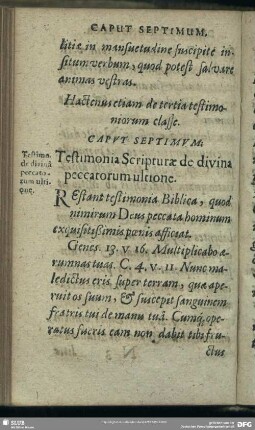 CAPUT SEPTIMUM.
litiæ in mansuetudine suscipite in-
situm verbum, quod potest salvare
animas vestras.
Hactenus etiam de tertia testimo-
niorum classe.
CAPVT SEPTIMVM.
Testimo.
de divinâ
peccato-
rum ulti-
one.
Testimonia Scripturæ de divina
peccatorum ultione.
REstant testimonia Biblica, quod
nimirum Deus peccata hominum
exquisitissimis pœnis afficiat.
Genes. 13. v. 16. Multiplicabo æ-
rumnas tuas. C. 4. v. 11. Nunc ma-
ledictus eris super terram, quæ ape-
ruit os suum, & suscepit sanguinem
fratris tui de manu tuâ. Cumq́; ope-
ratus fueris eam non dabit tibi fru-
ctus
SLUB
DFG